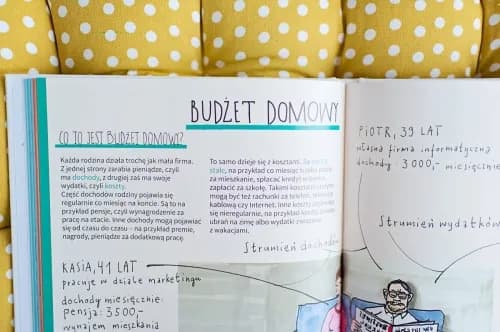 BUDŻET DOMOWY
CO TO JEST BUDŻET DOMOWY?
Każda rodzina działa trochę jak mała firma.
Z jednej strony zarabia pieniądze, czyli
ma dochody, z drugiej zaś ma swoje
wydatki, czyli koszty.
Część dochodów rodziny pojawia się
regularnie co miesiąc na koncie. Są to na
przykład pensje, czyli wynagrodzenie za
pracę na etacie. Inne dochody mogą pojawiać
się od czasu do czasu – na przykład premie,
nagrody, pieniądze za dodatkową pracę.
To samo dzieje się z kosztami. Są
stałe, na przykład co miesiąc trzeba
za mieszkanie, spłacać kredyt
zapłacić za szkołę. Takimi kosztami
być też rachunki za telefon,
kablową czy Internet. Inne koszty
się nieregularnie, na przykład koszty
ubrań na zimę albo wydatki związane
z wakacjami.
Strumień dochodów
KASIA, 41 LAT
pracuje w dziale marketingu
dochody miesięcznie:
pensja: 3500,-
wynajem mieszkania
PIOTR, 39 LAT
własna firma informatyczna
dochody: 3000,- miesięcznie
Strumień wydatków